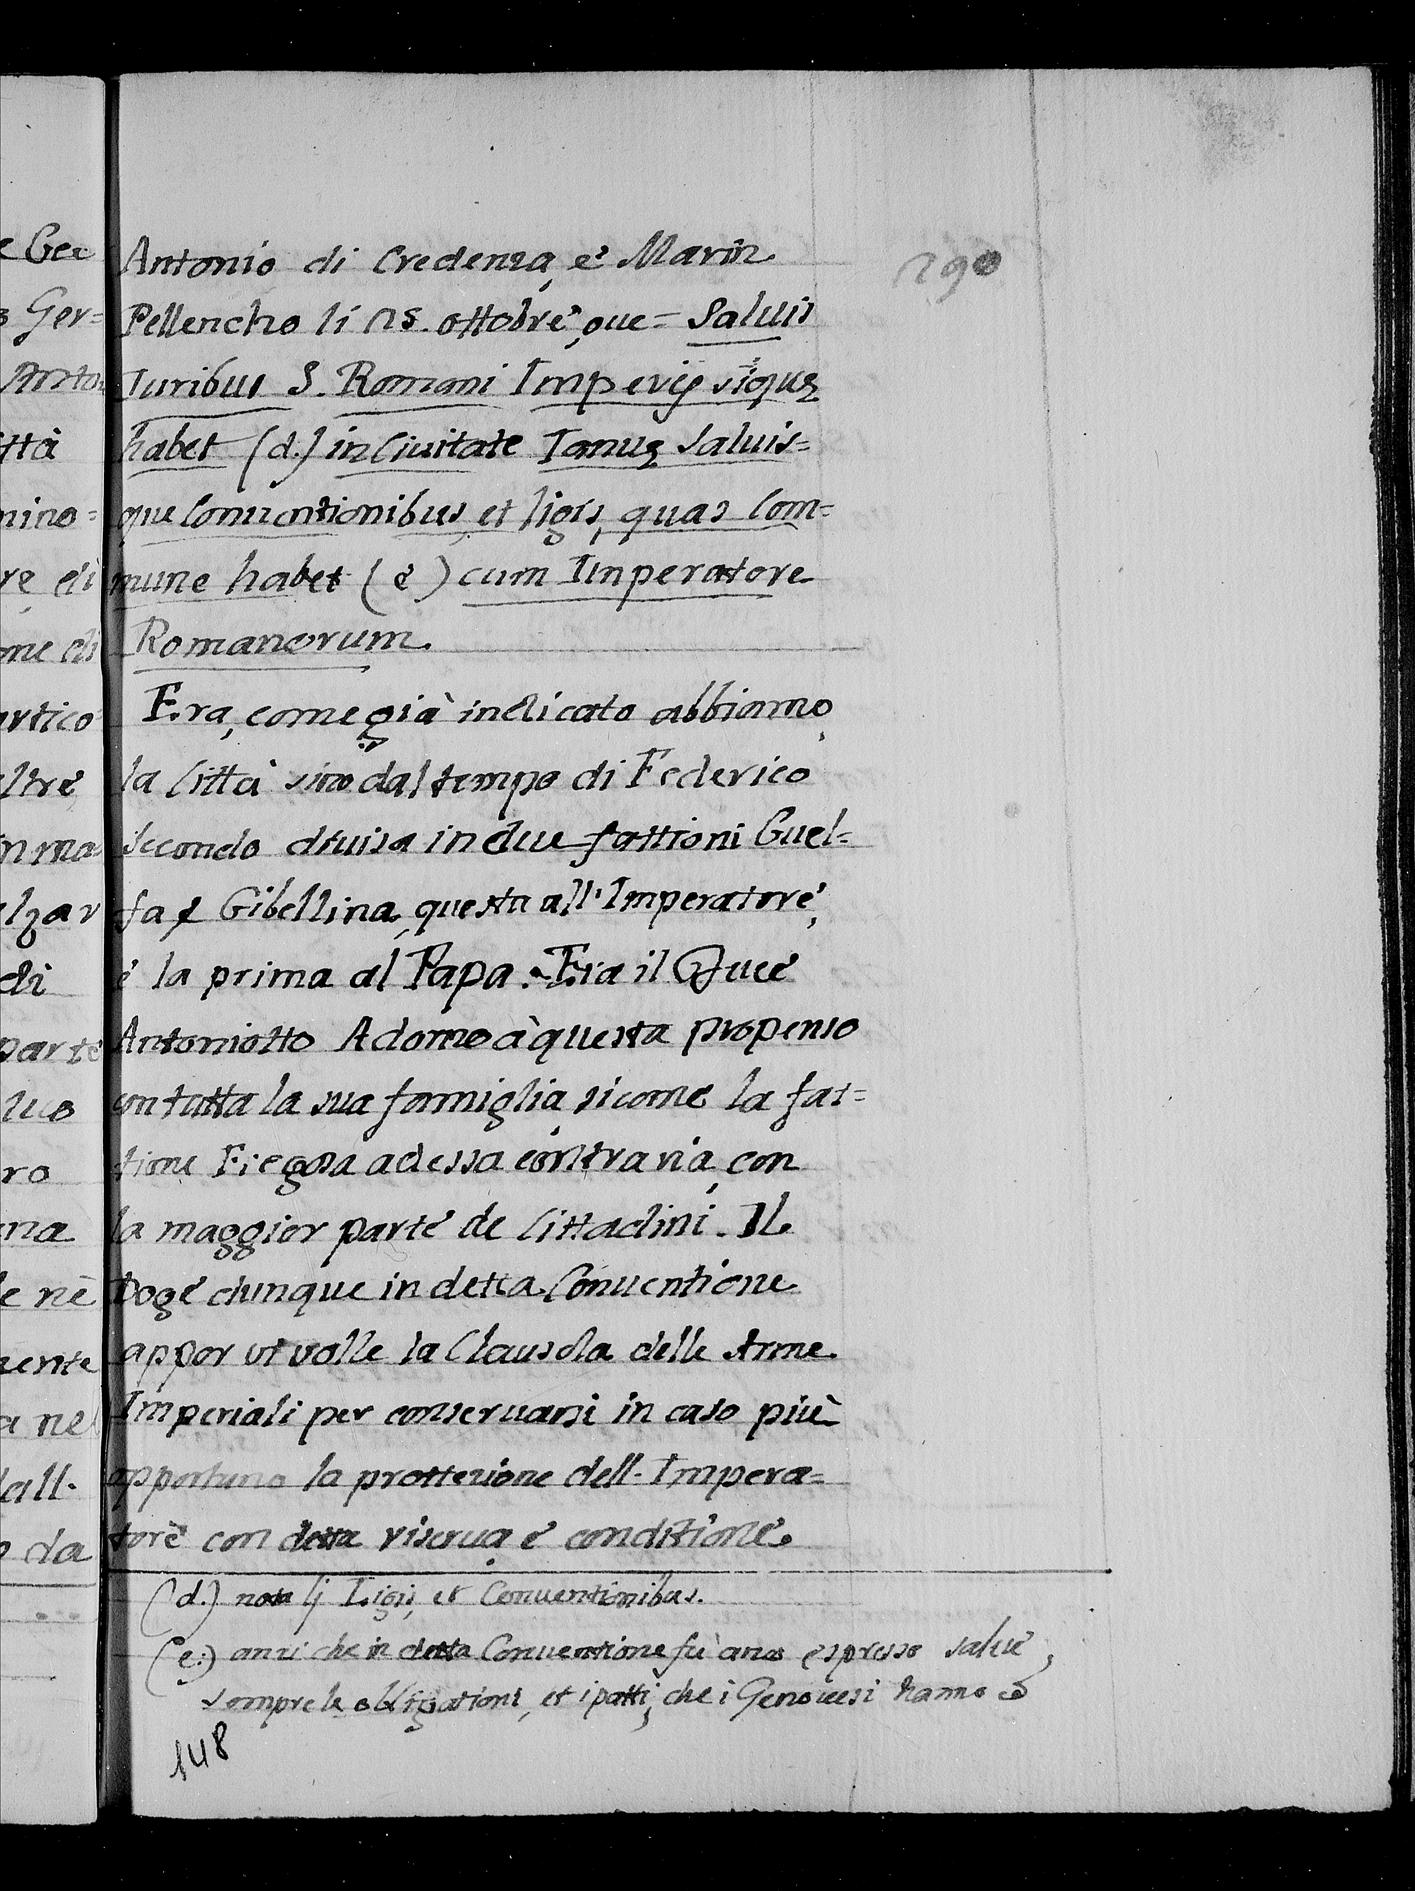 290
Antonio di Credenza, e Marin
Pellencho li 25. ottobre, oue = Saluis
Iuribus S. Romani Imperij siquę
habet (d.) in Ciuitate Ianuę saluis=
que Conuentionibus, et ligis, quas Com=
mune habet (e) cum Imperatore
Romanorum.
Era, come già indicato abbiamo,
la Città sino dal tempo di Federico
Secondo diuisa in due fattioni Guel=
fa e Gibellina, questa all'Imperatore,
e la prima al Papa. Era il Duce
Antoniotto Adorno à questa propenso
con tutta la sua famiglia, sicome la fat=
tione Fregosa ad essa contraria, con
la maggior parte de Cittadini. Il
Doge dunque in detta Conuentione
appor vi volle la Clausola delle Arme
Imperiali per conseruarsi in caso più
opportuno la prottezione dell'Impera=
tore con detta riserua e conditione.
(d.) nota lj Ligis, et Conuentionibus.
(e.) anzi che in detta Conuentione fù anco espresso salue,
sempre le obligationi, et i patti, che i Genouesi hanno cō
148